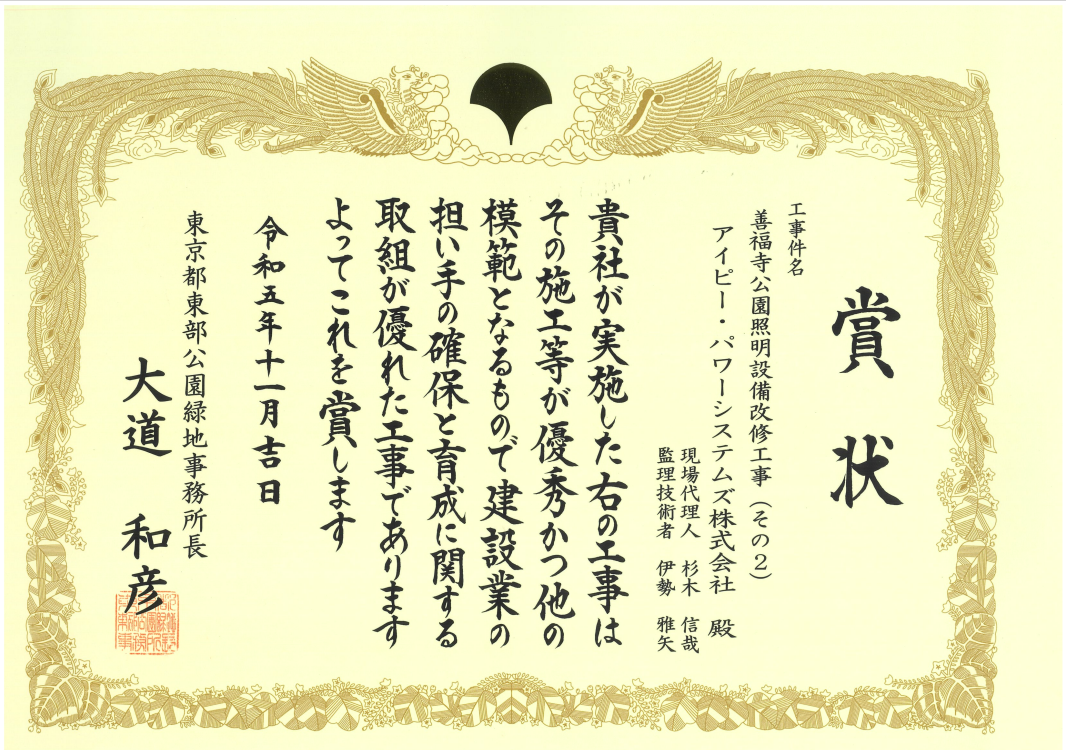 賞状
工事件名
善福寺公園照明設備改修工事（その２）
アイピー・パワーシステムズ株式会社 殿
現場代理人 杉木 信哉
監理技術者 伊勢 雅矢
貴社が実施した右の工事は
その施工等が優秀かつ他の
模範となるもので建設業の
担い手の確保と育成に関する
取組が優れた工事であります
よってこれを賞します
令和五年十一月吉日
東京都東部公園緑地事務所長
大道 和彦